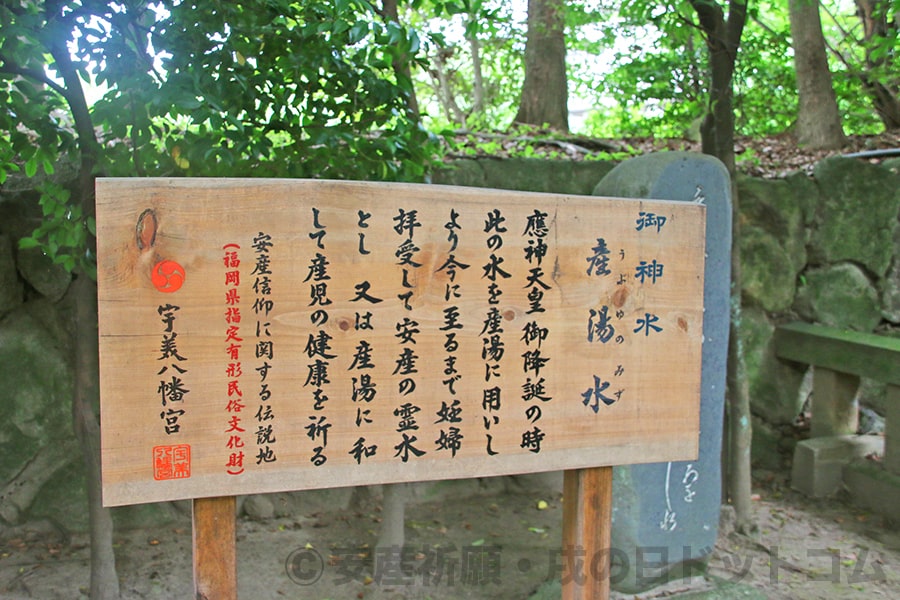 御神水
産湯水
うぶゆのみず
應神天皇御降誕の時
此の水を産湯に用いし
より今に至るまで妊婦
拝受して安産の霊水
とし 又は産湯に和
して産児の健康を祈る
安産信仰に関する伝説地
(福岡県指定有形民俗文化財)
宇美八幡宮
©安産祈願・戌の日ドットコム